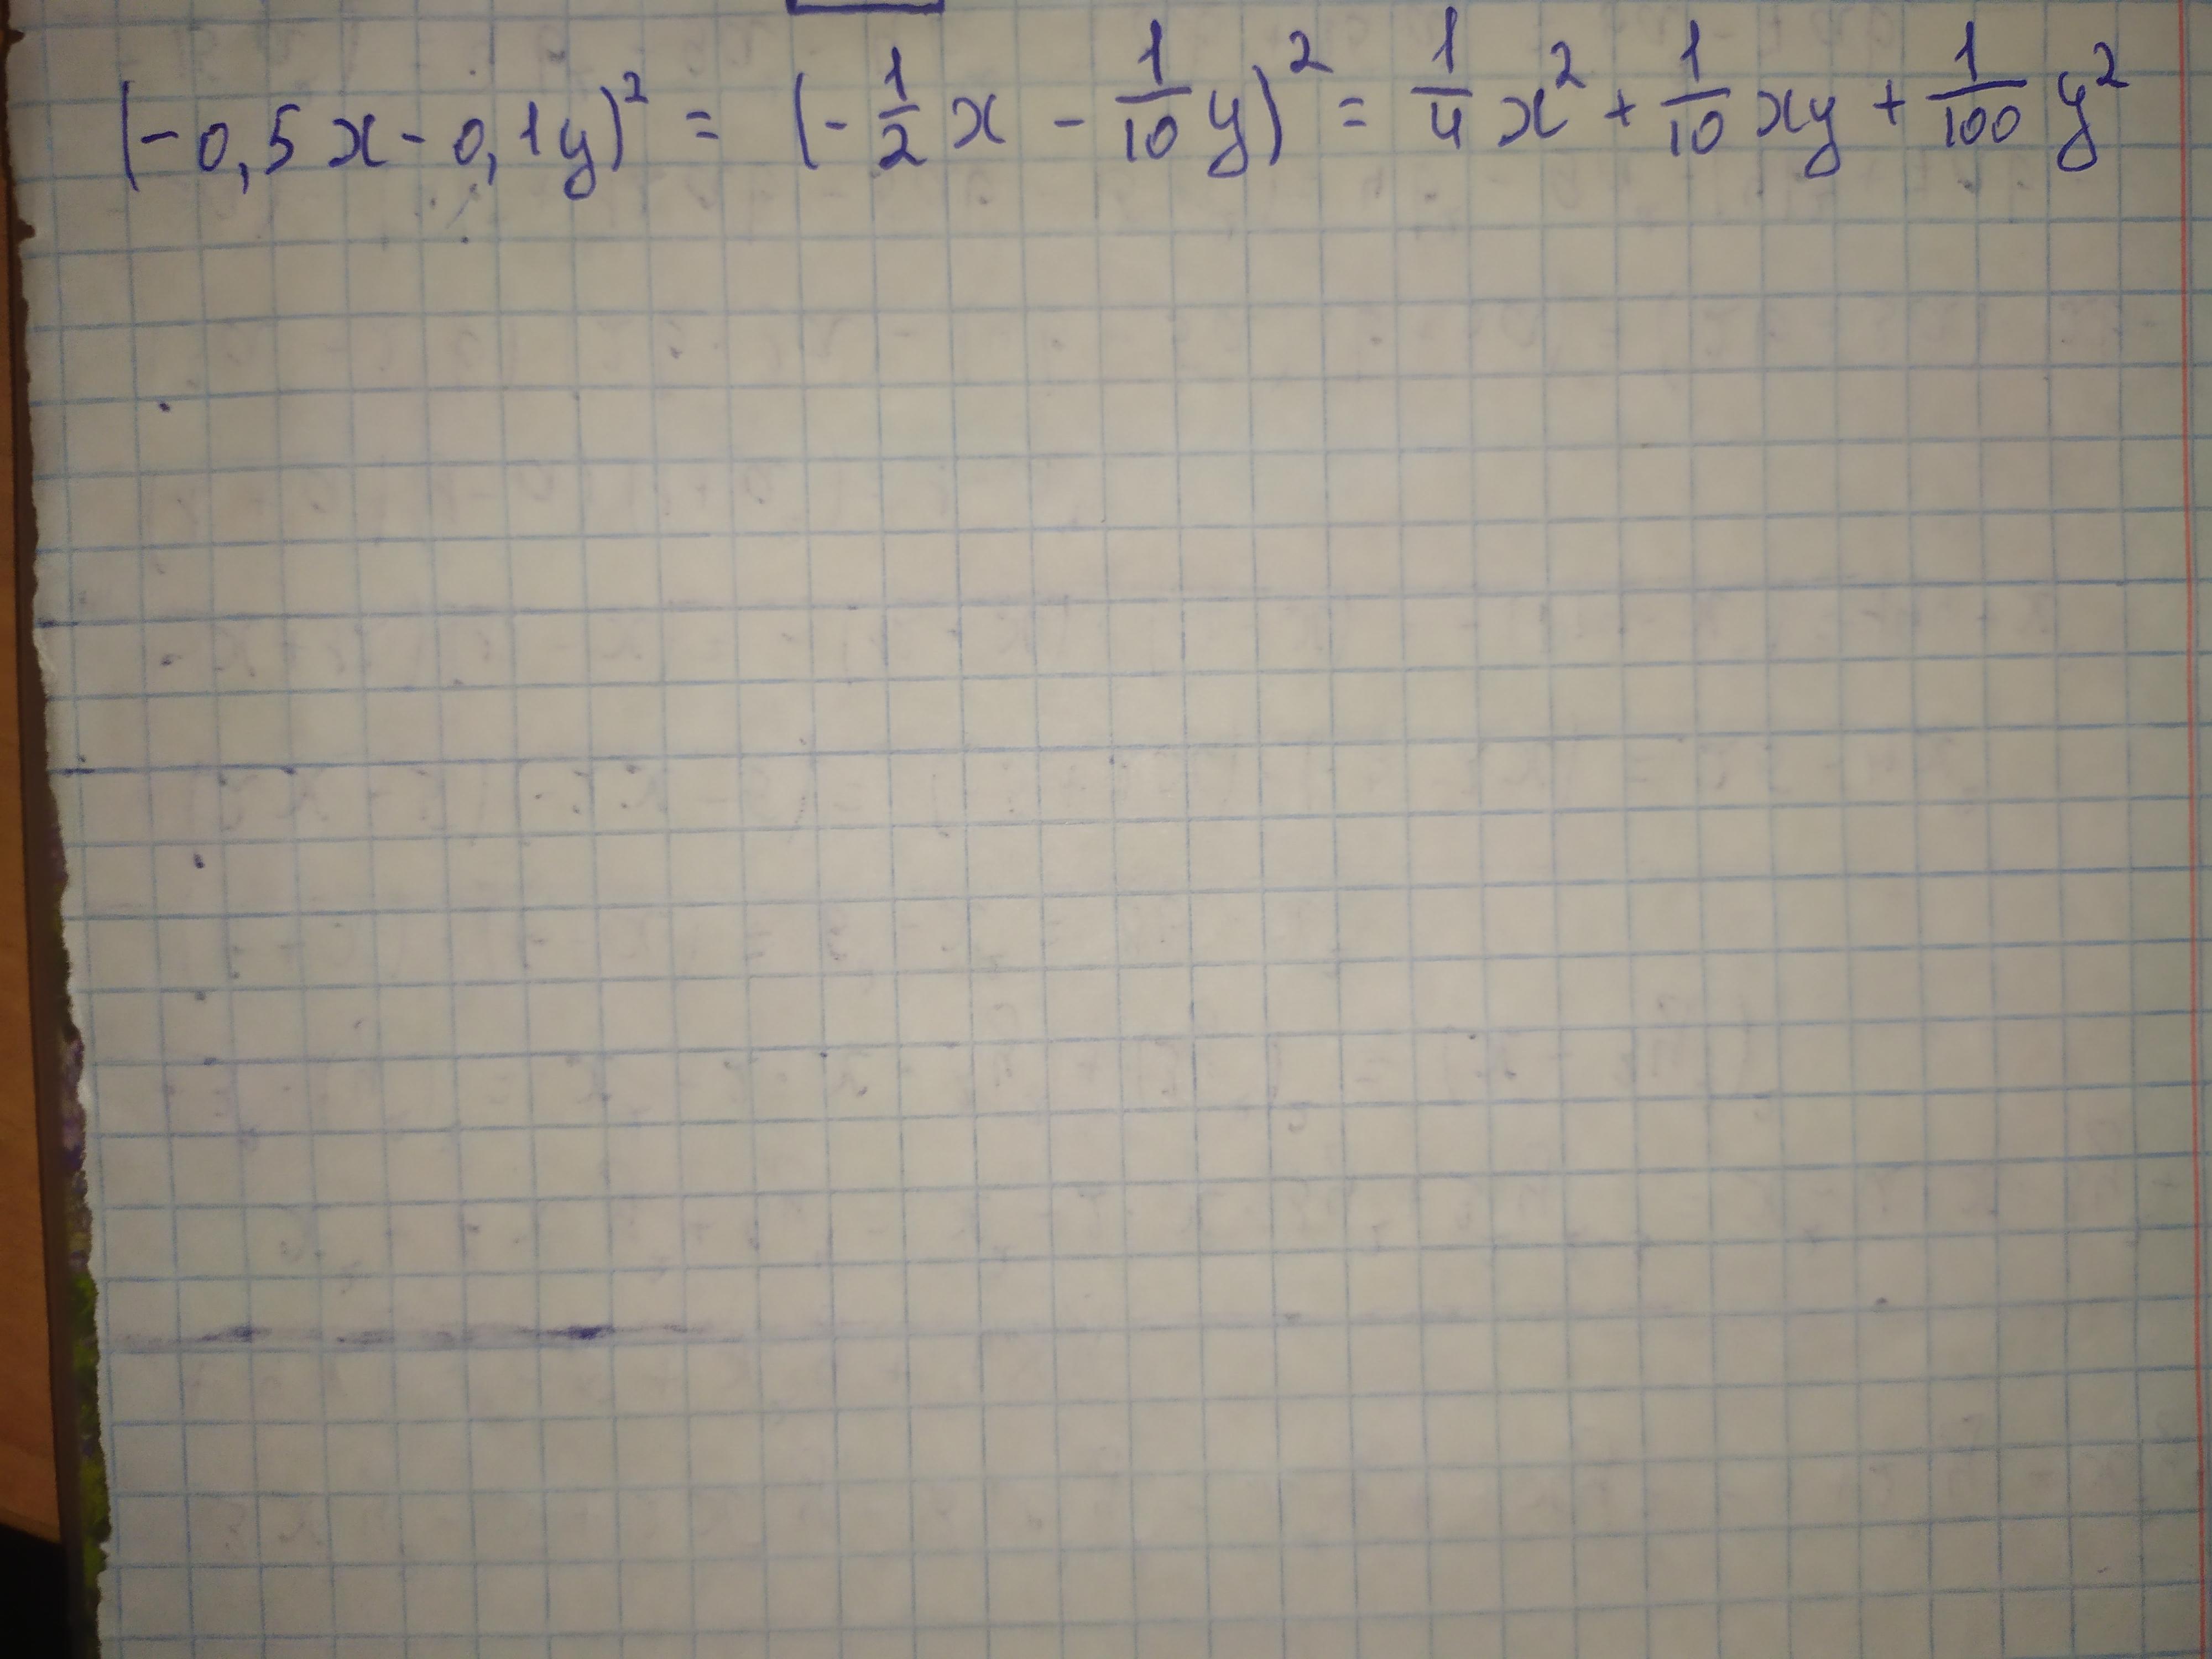 (-0,5x-0,1y)² = (-1/2x - 1/10y)² = 1/4x² + 1/10xy + 1/100y²